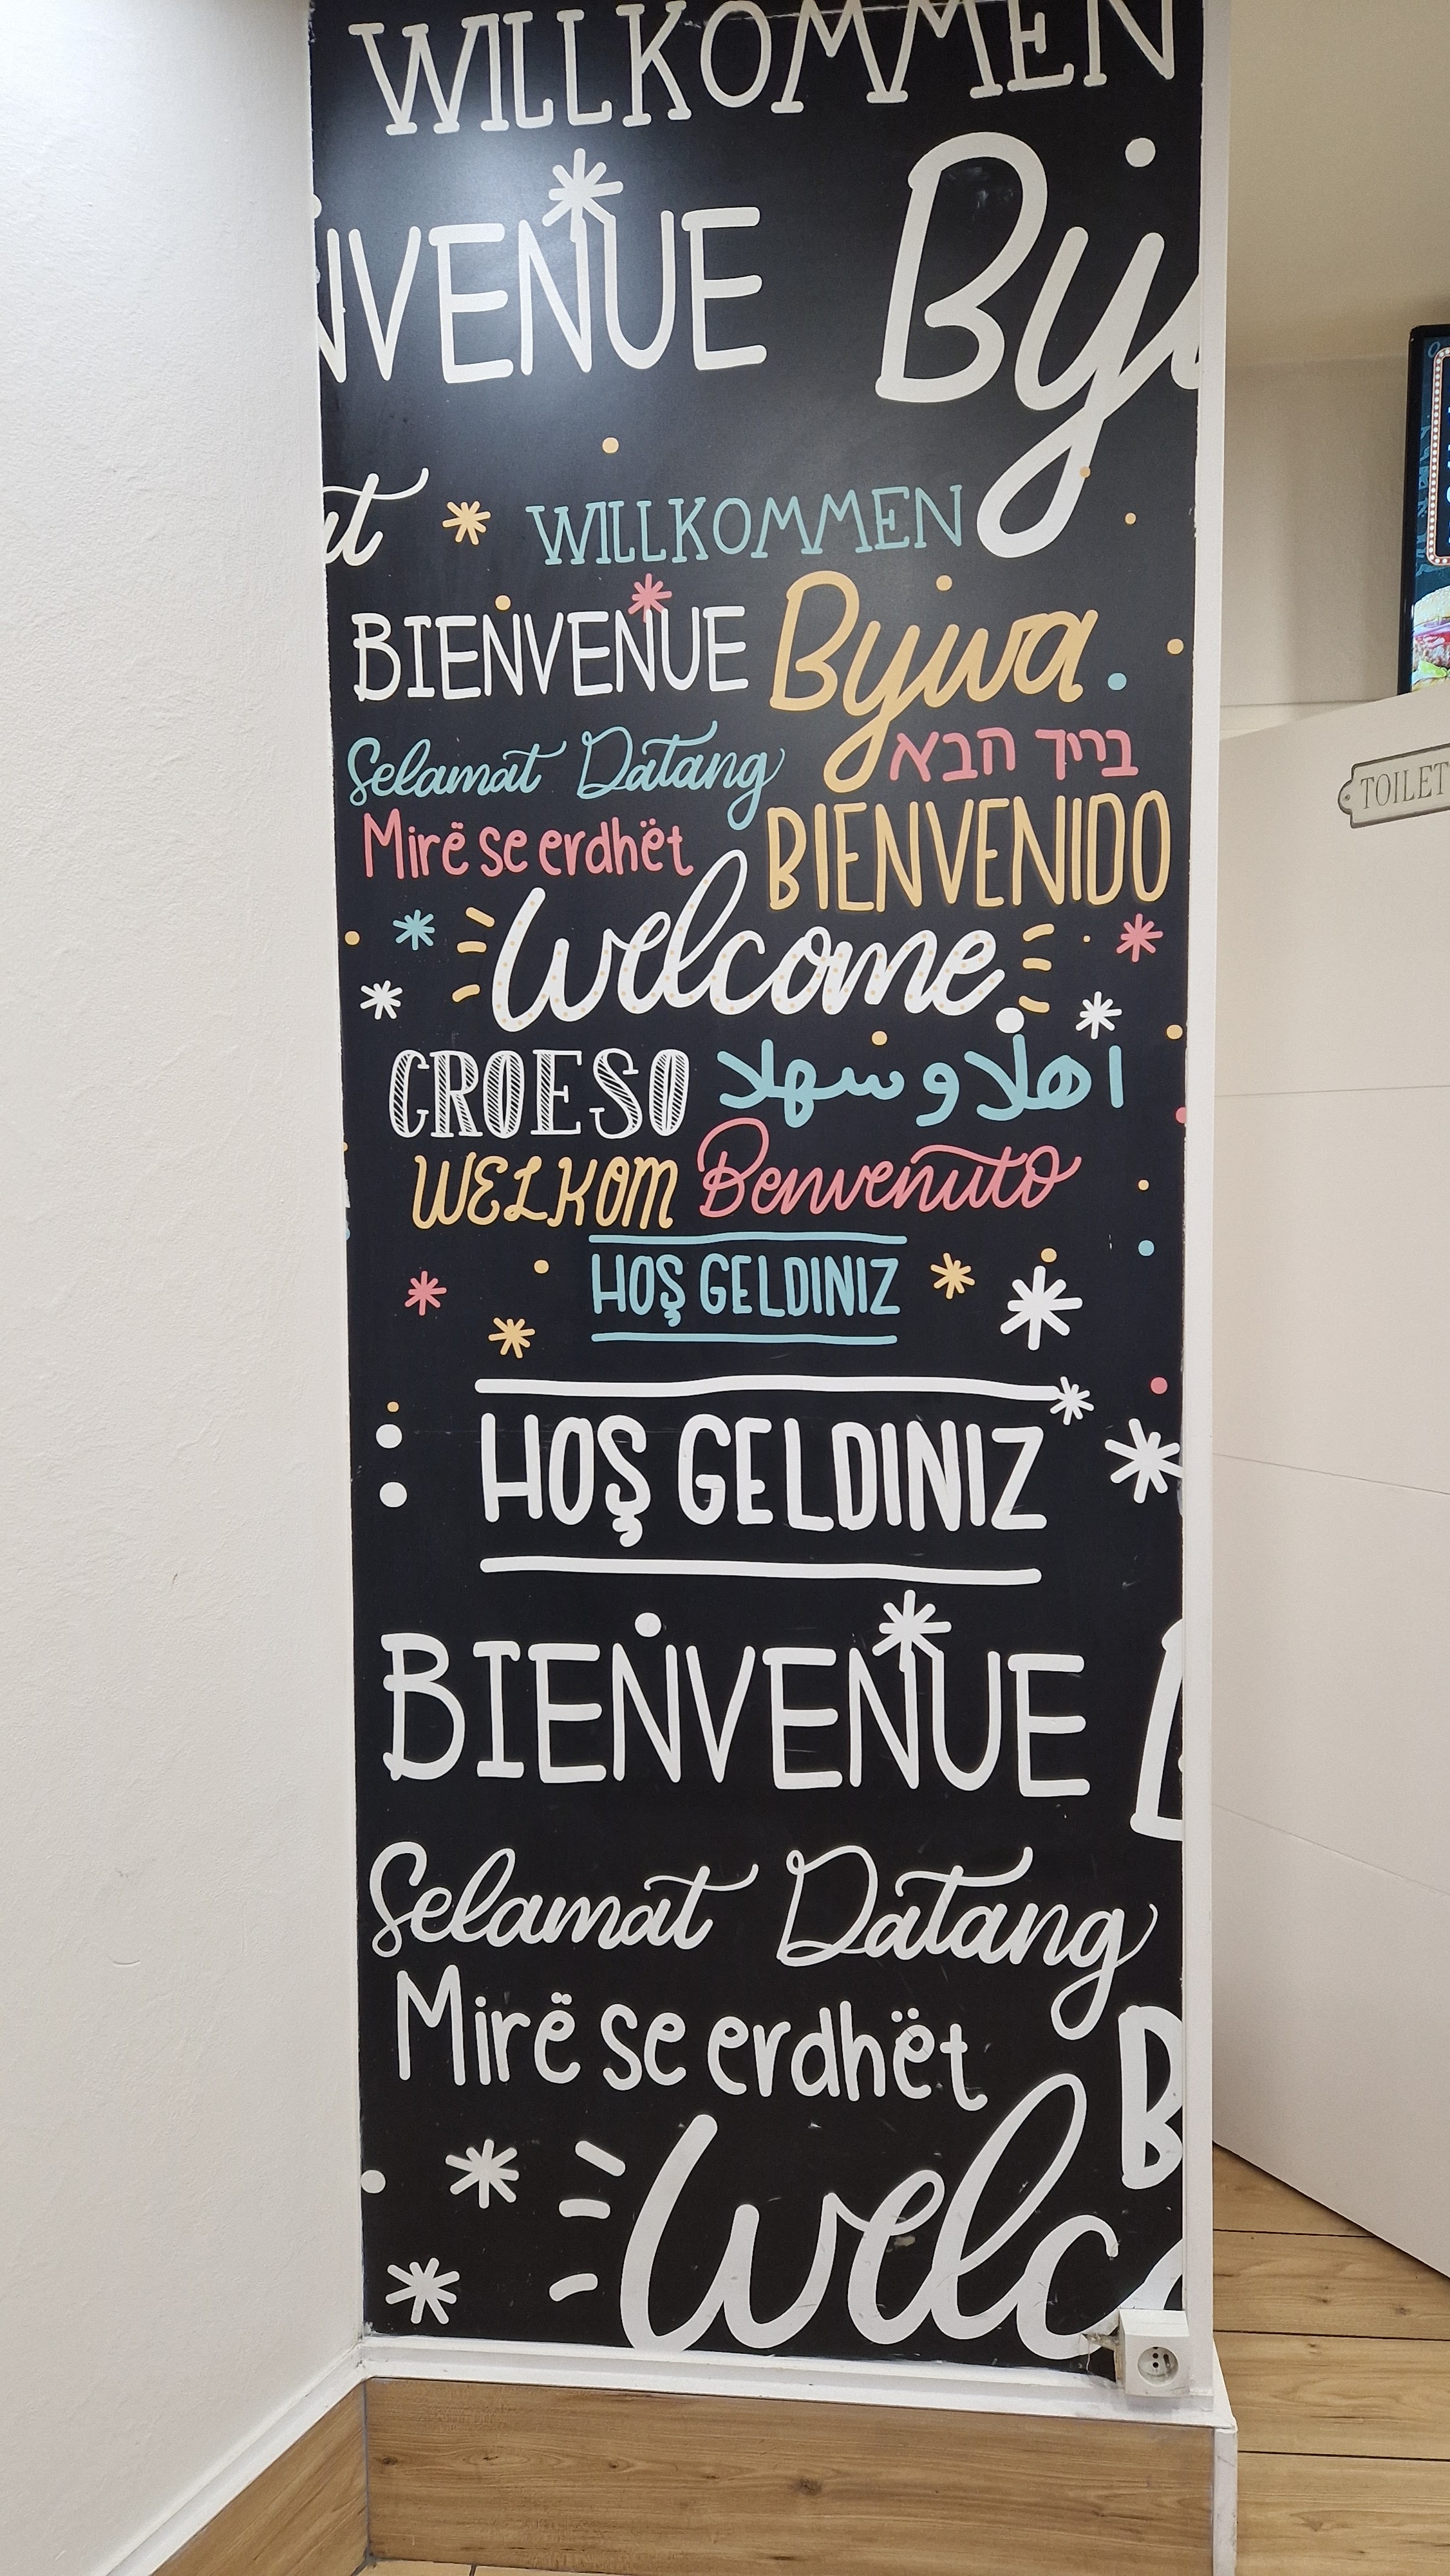 WILLKOMMEN
NVENUE
WILLKOMMEN
BIENVENUE Bywa
Selamat Datang בריך הבא
Mirë se erdhët BIENVENIDO
Welcome
CROESO اهلا و سهلا
WELKOM Benvenuto
HOŞ GELDINIZ
HOŞ GELDINIZ
BIENVENUE
Selamat Datang
Mirë se erdhët
Welc
TOILET